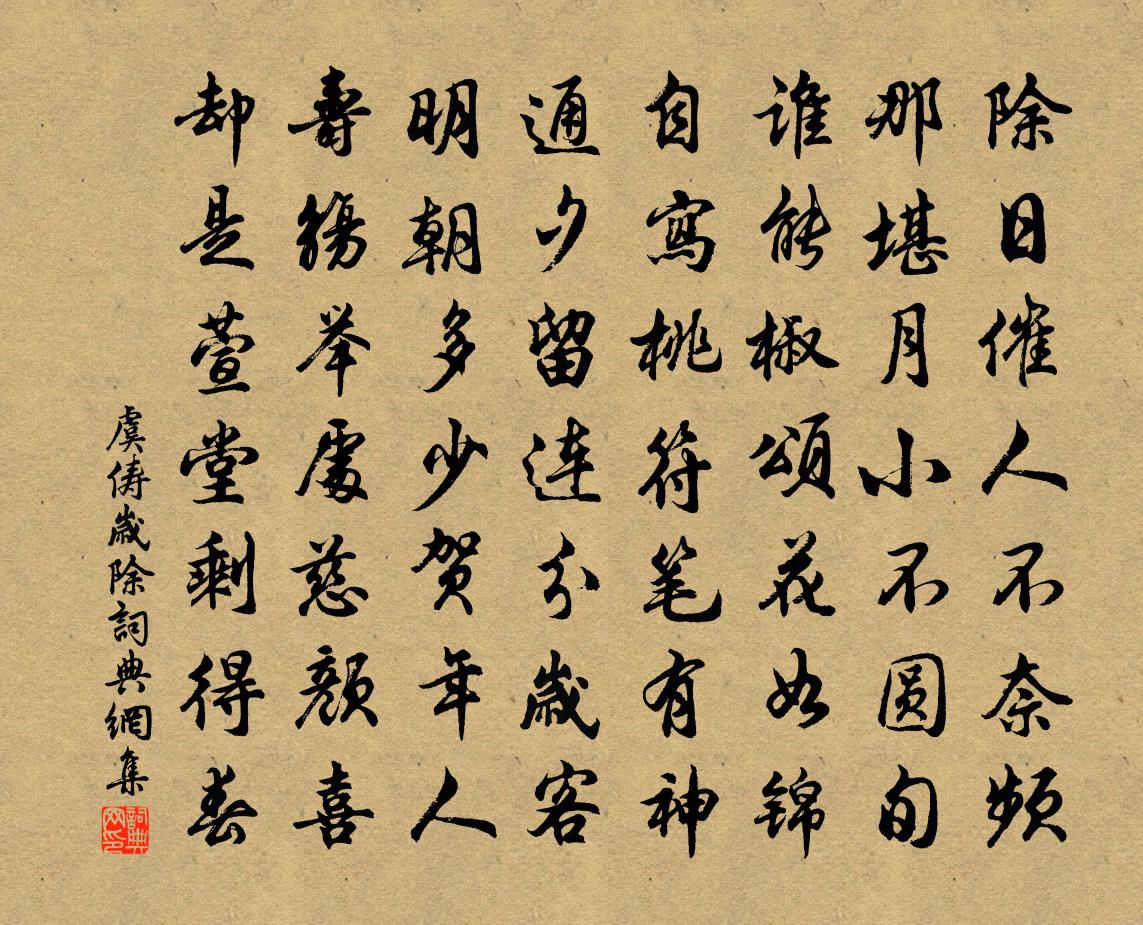 除日催人不奈频
那堪月小不圆旬
谁能椒颂花如锦
自写桃符笔有神
通夕留连分岁客
明朝多少贺年人
寿觞举处慈颜喜
却是萱堂剩得春
虞俦岁除词典网集
词典网印